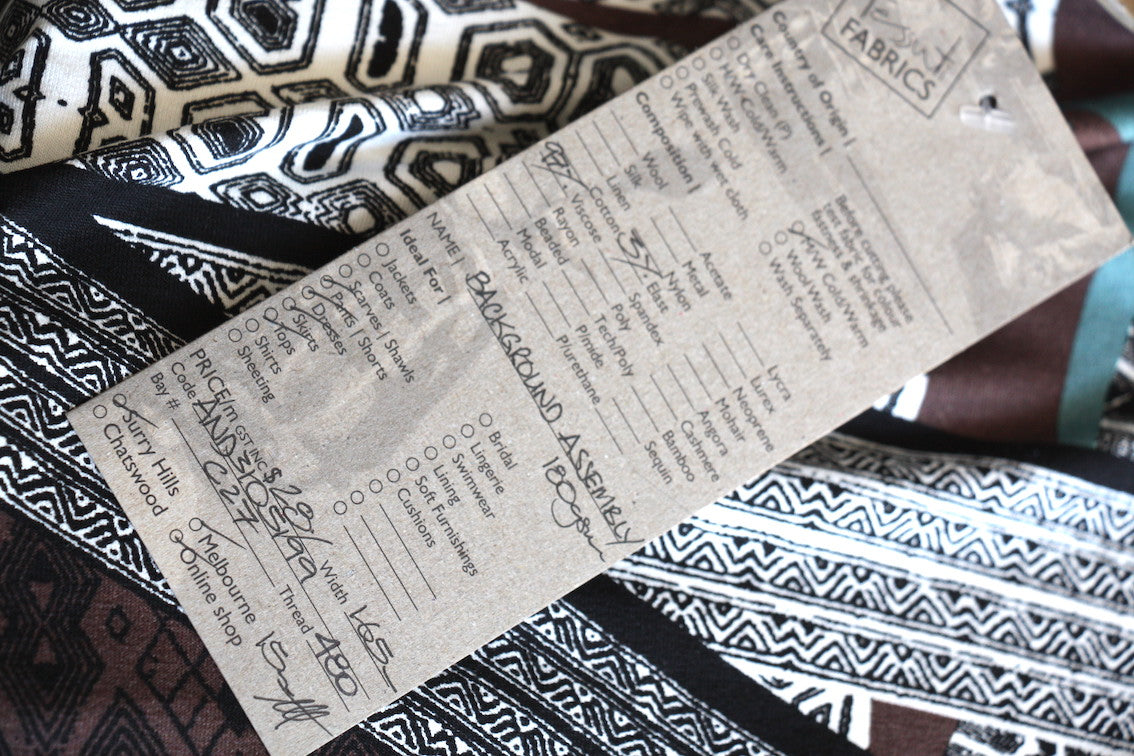 Tessuti
FABRICS
Country of Origin |
Care Instructions |
Dry Clean (P)
H/W Cold/Warm
Silk Wash
Prewash Cold
Wipe with wet cloth
Before cutting please
test fabric for colour
fastness & shrinkage
M/W Cold/Warm
Wool Wash
Wash Separately
Composition |
Wool
Silk
Linen
Cotton
97% Viscose
Rayon
Beaded
Modal
Acrylic
Acetate
Metal
Nylon
3% Elast
Spandex
Poly
Tech/Poly
P/mide
P/urethane
Lycra
Lurex
Neoprene
Mohair
Angora
Cashmere
Bamboo
Sequin
NAME | BACKGROUND ASSEMBLY
180gsm
Ideal For |
Jackets
Coats
Scarves / Shawls
Pants / Shorts
Dresses
Skirts
Tops
Shirts
Sheeting
Bridal
Lingerie
Swimwear
Lining
Soft Furnishings
Cushions
PRICE/m GST INC $20/ Width 165
Code
Thread 480
Bay # C27
Surry Hills
Chatswood
Melbourne
Online shop